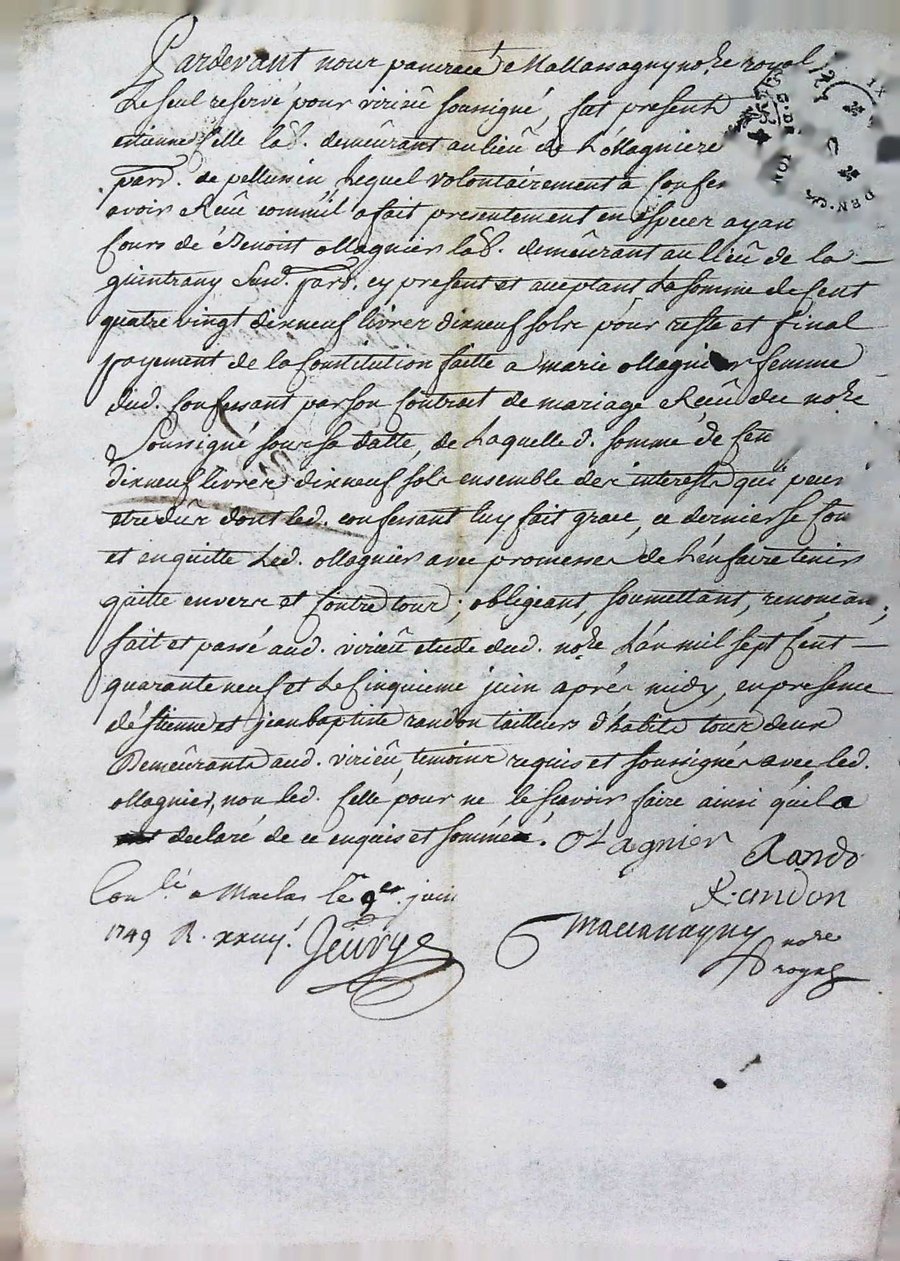 Pardevant nous pancrace Mallassagny no.re royal
Le seul reservé pour virieû soussigné, fut present
estienne Celle lab.r demeûrant au lieû de L'ollagniere
parr. de pellussin Lequel volontairement a Confes
avoir Receû comm'il a fait presentement en especes ayan
Cours de Benoist ollagnier lab.r demeûrant au lieû de la
guintrany Sus.d parr. cy present et aceptant La somme de Cent
quatre vingt dixneuf livres dixneuf sols pour reste et final
payement de la Constitution faitte a marie ollagnier femme
dud. Confessant par son Contract de mariage Receû du no.re
Soussigné sous sa datte, de Laquelle d. somme de Cen
dixneuf livres dixneuf sols ensemble des interests qui peuv
etre dûs dont led. confessant luy fait grace, ce dernier se Con
et en quitte Led. ollagnier avec promesse de L'en faire tenir
quitte envers et Contre tous; obligeant, soumettant, renoncan,
fait et passé aud. virieû etude dud. no.re L'an mil sept Cent
quarante neuf et Le Cinquieme juin aprés midy, en presence
d'Estienne et jean baptiste randon tailleurs d'habits tous deux
Demeûrants aud. virieû, temoins requis et soussignés avec led.
ollagnier, non led. Celle pour ne le scavoir faire ainsi qu'il a
declaré de ce enquis et sommé.
OLagnier
Rando
Randon
Con.lé a Maclas le 9.e juin
1749 R. xxiiij s.
Jeûrys
Mallassagny no.re
royal